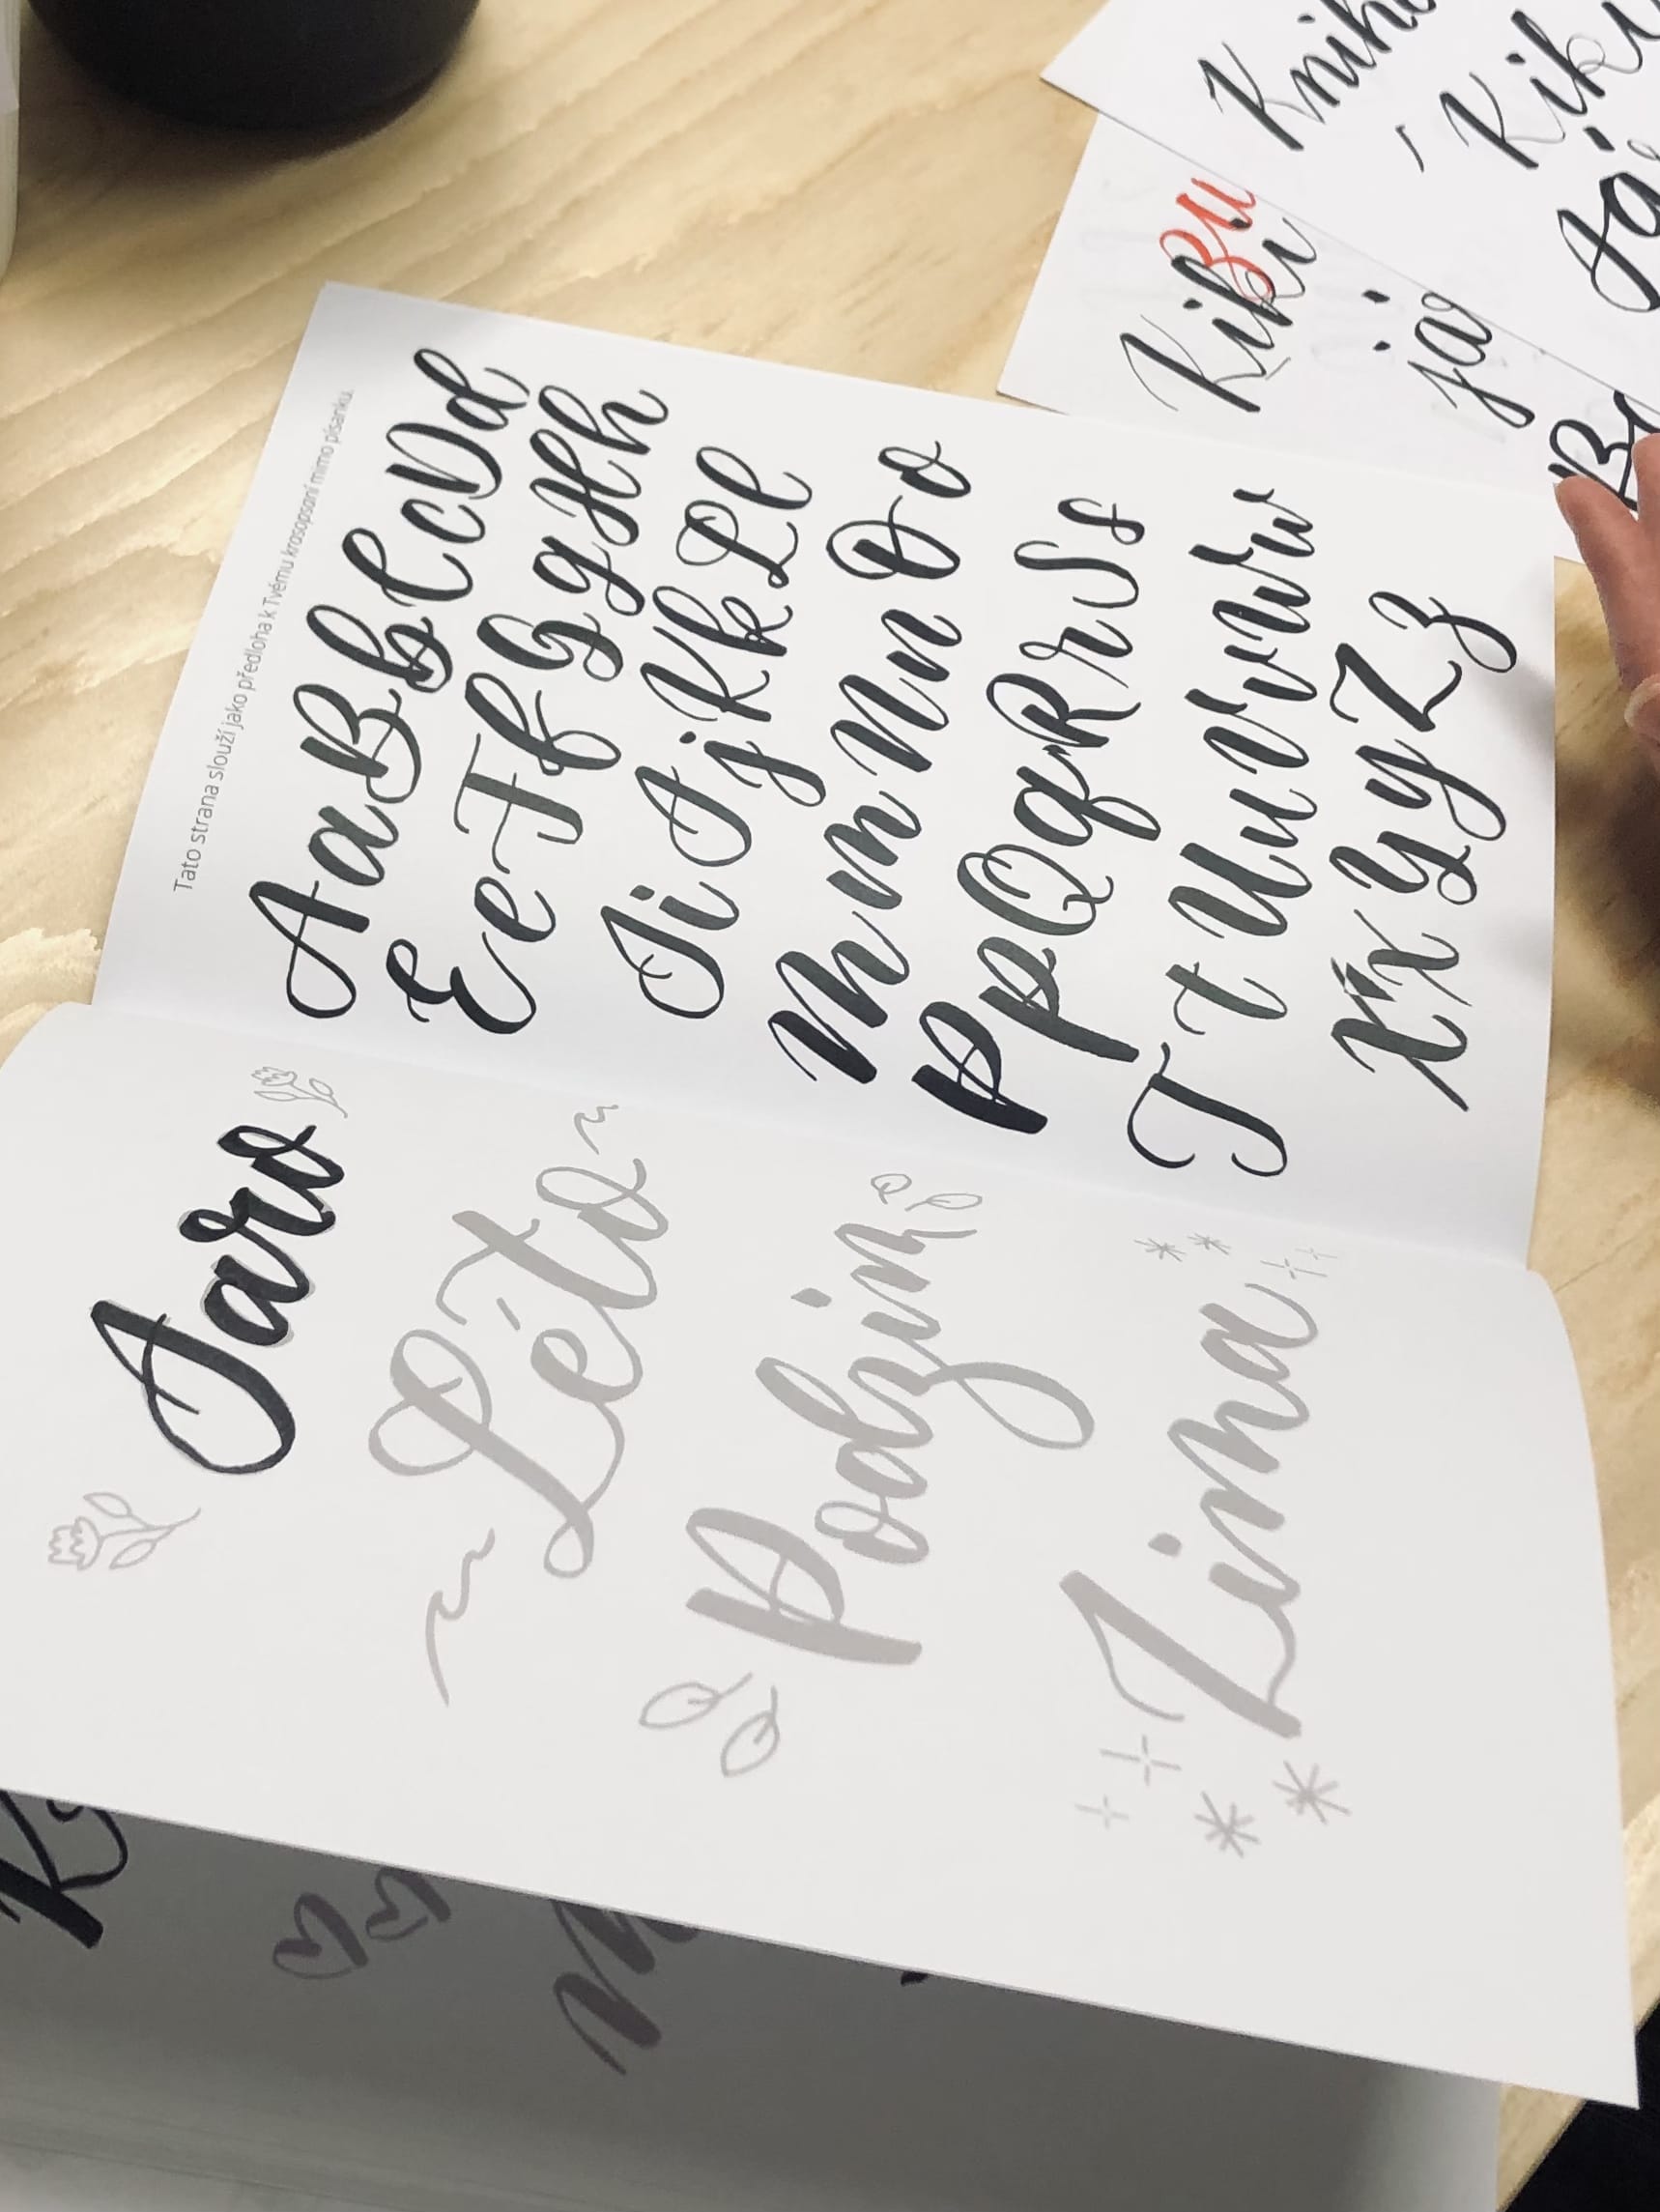 Tato strana slouží jako předloha k Tvému krasopsaní mimo písanku.
Aa Bb Cc Dd
Ee Ff Gg Hh
Ii Jj Kk Ll
Mm Nn Oo
Pp Qq Rr Ss
Tt Uu Vv Ww
Xx Yy Zz
Jaro
Léto
Podzim
Zima
Kiki
Kiki
já